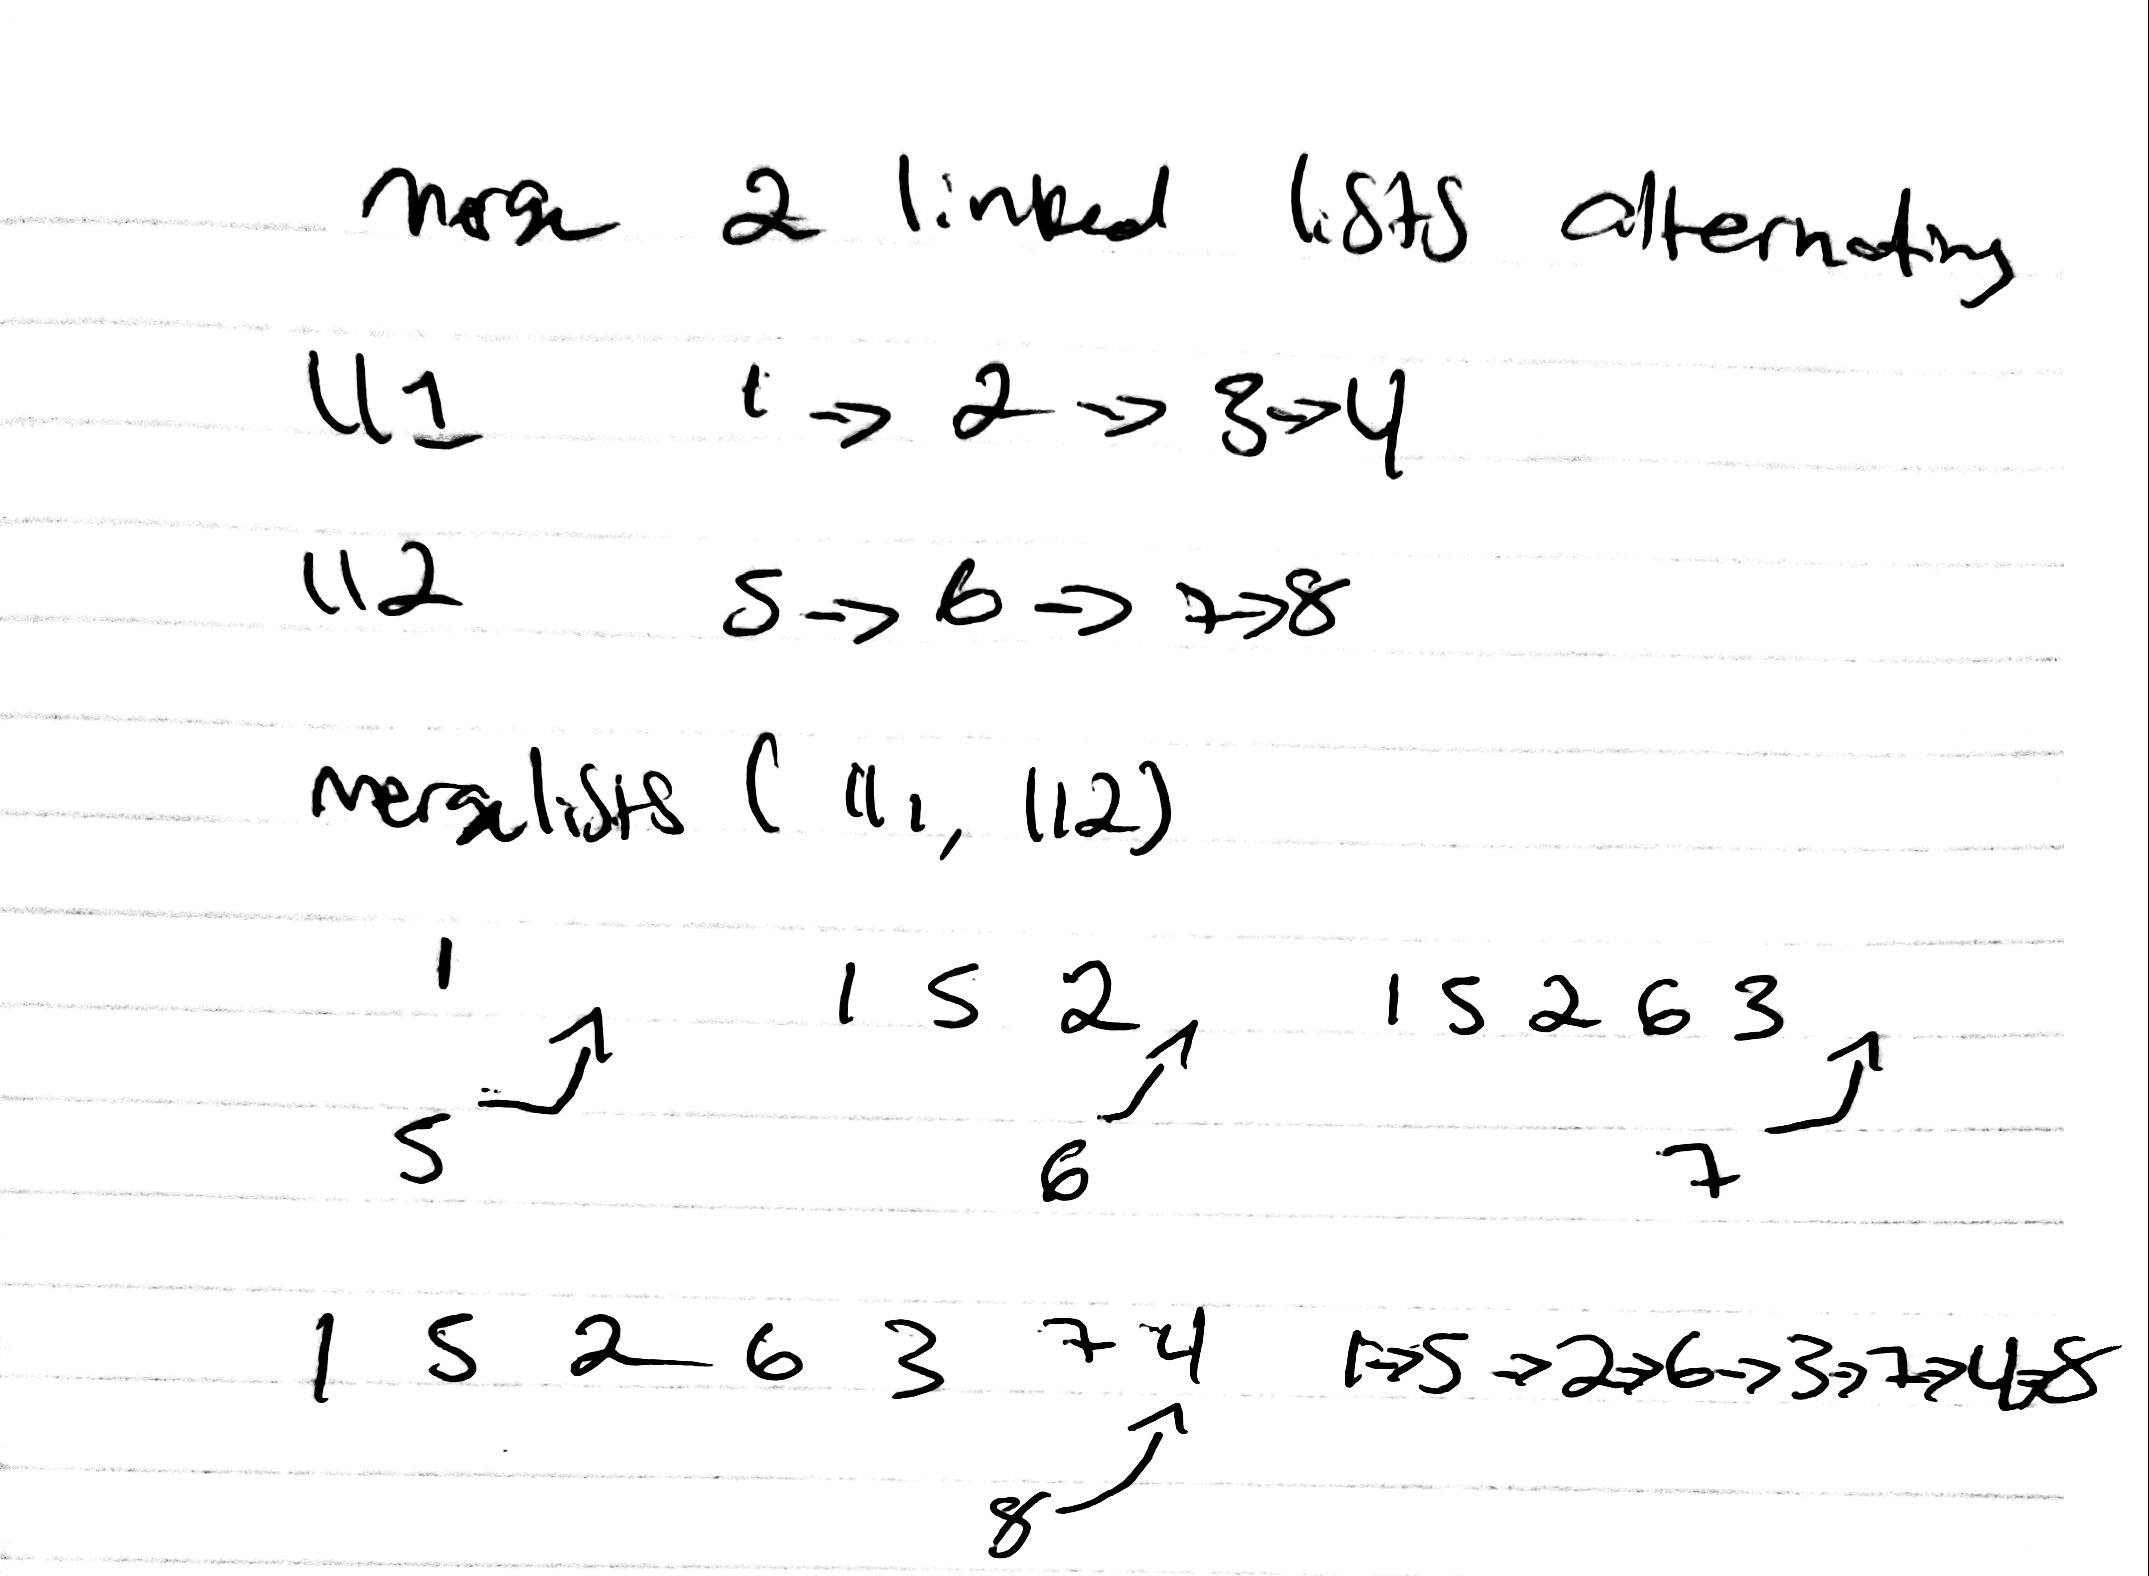 merge 2 linked lists alternating
ll1 1 -> 2 -> 3 -> 4
ll2 5 -> 6 -> 7 -> 8
mergelists ( ll1, ll2)
1 1 5 2 1 5 2 6 3
5 6 7
1 5 2 6 3 7 4 1->5->2->6->3->7->4->8
8